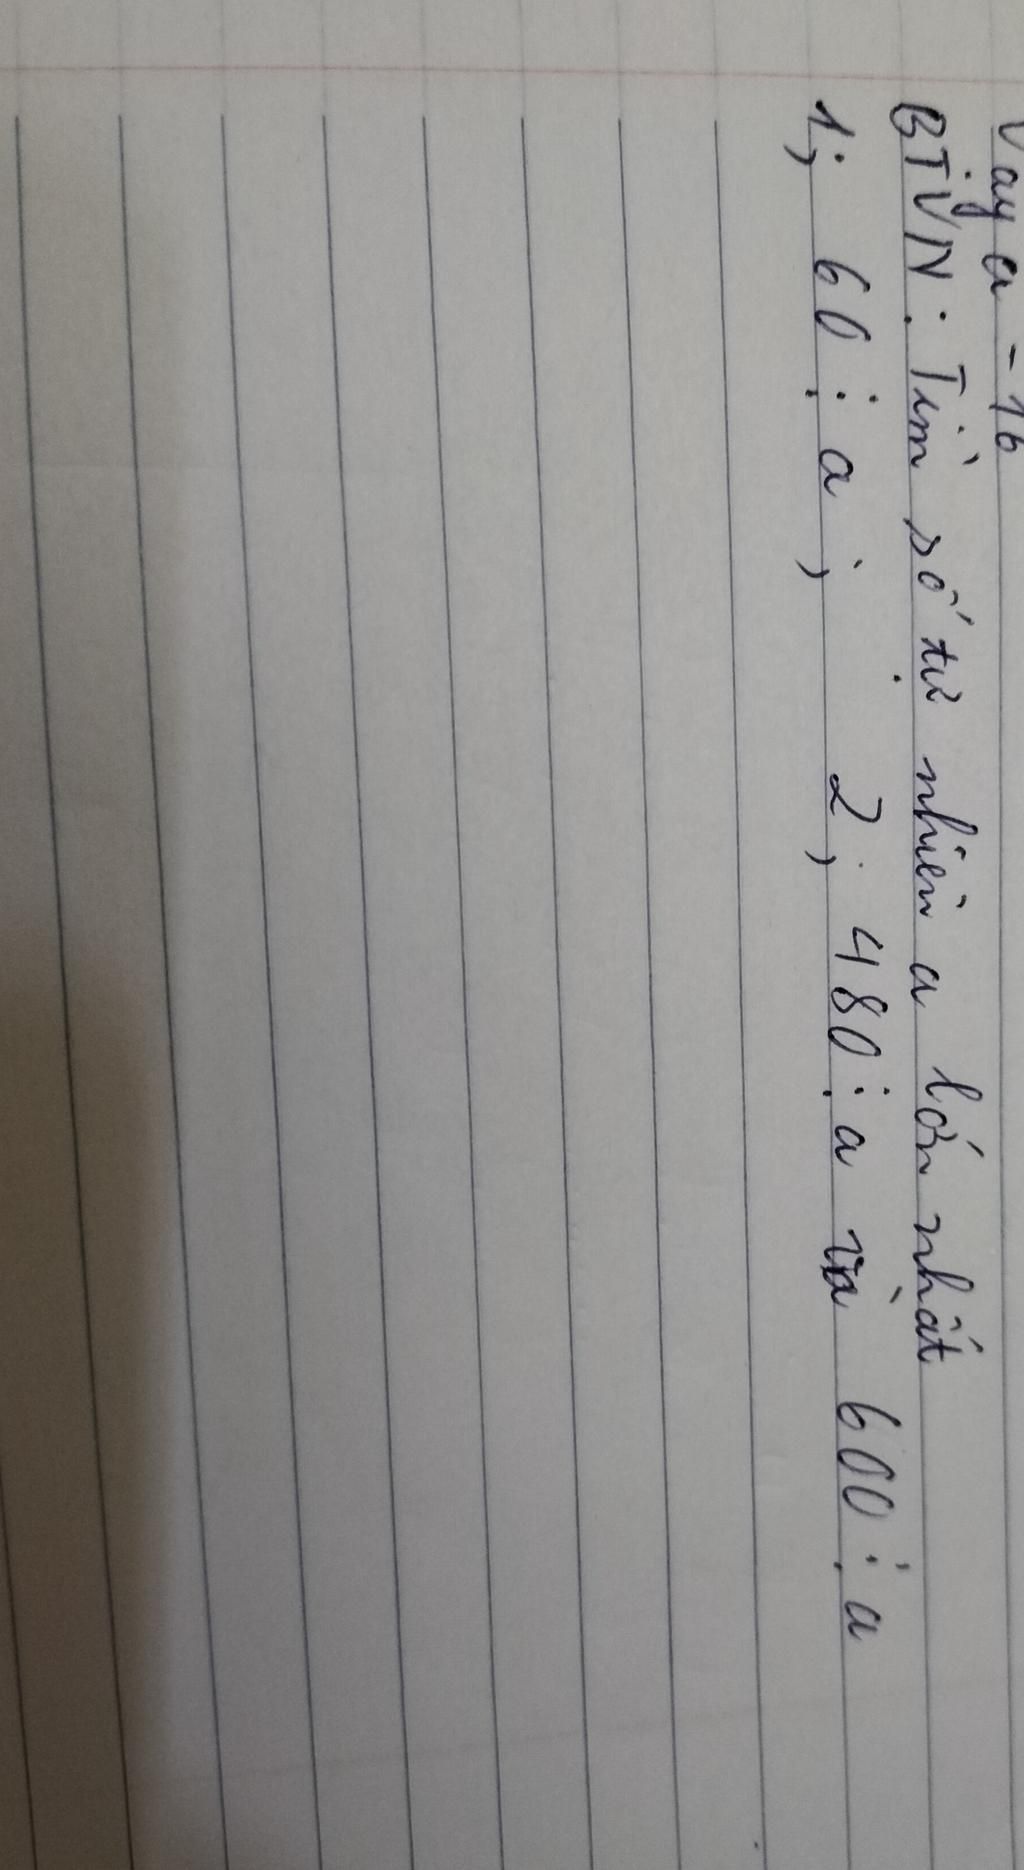 Vậy a = 16
BTVN: Tìm số tự nhiên a lớn nhất
1; 60 ⋮ a; 2; 480 ⋮ a và 600 ⋮ a